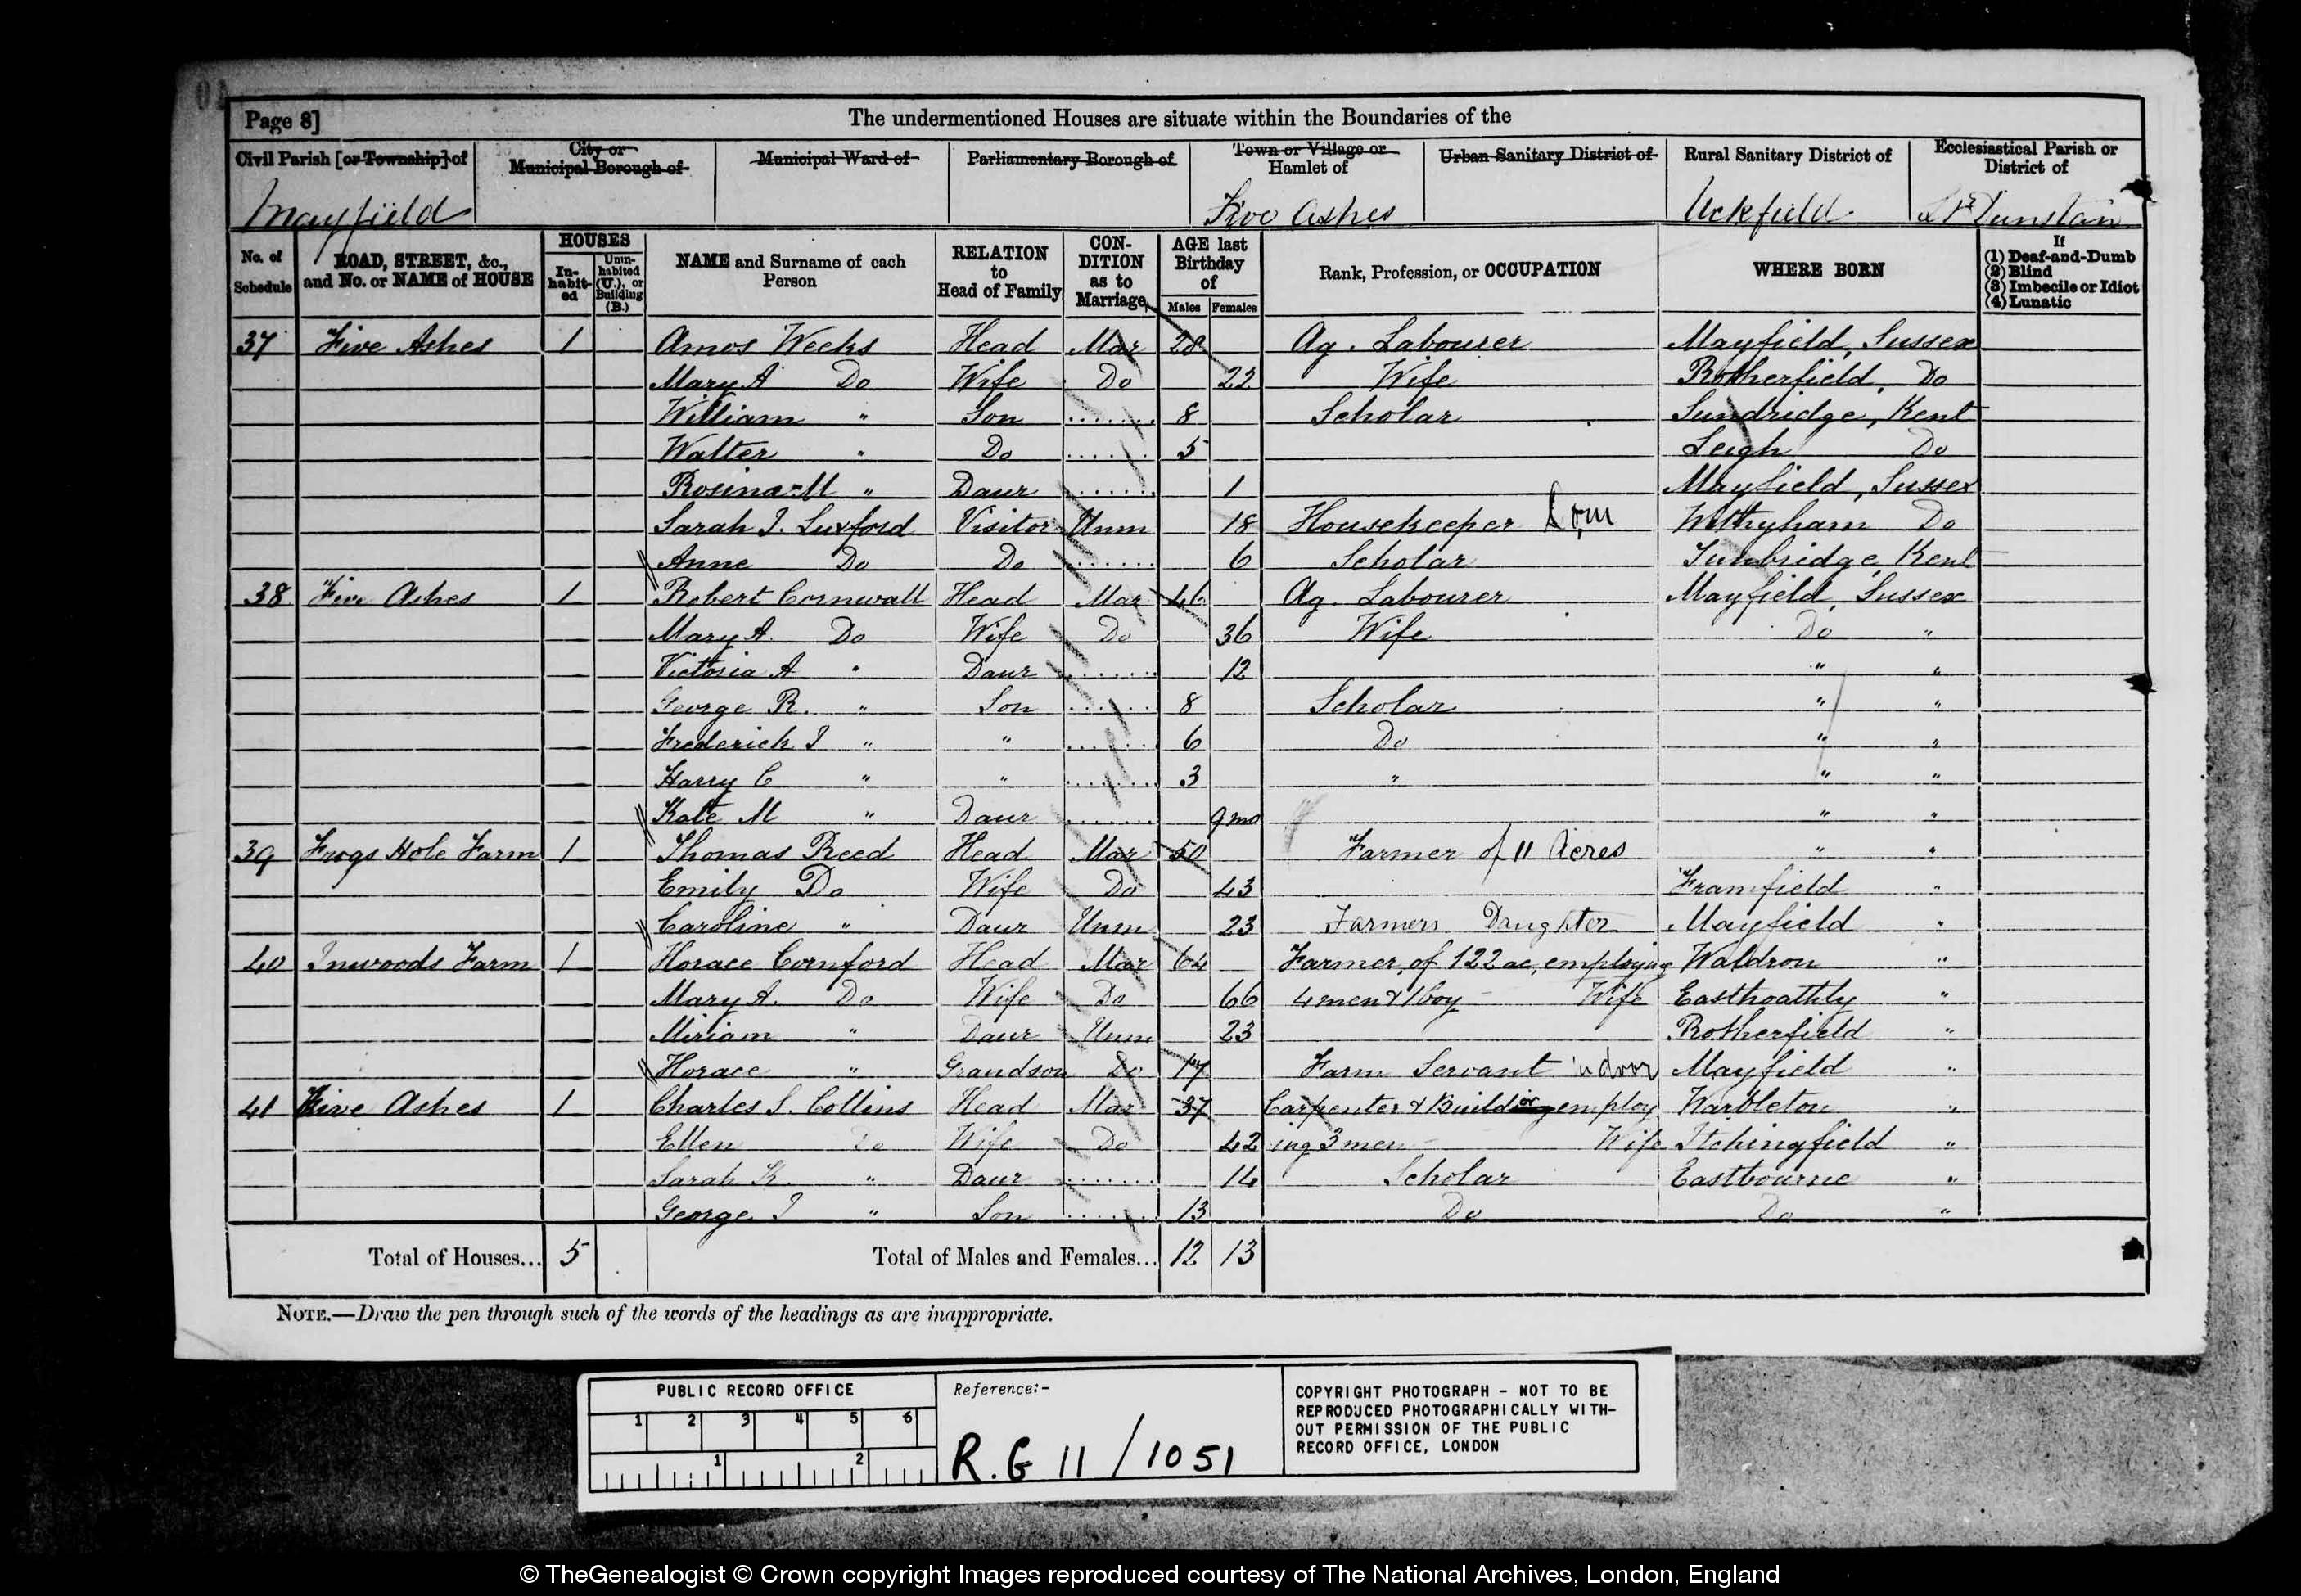 Page 8]
The undermentioned Houses are situate within the Boundaries of the
Civil Parish [or Township] of
City or Municipal Borough of
Municipal Ward of
Parliamentary Borough of
Town or Village or Hamlet of
Urban Sanitary District of
Rural Sanitary District of
Ecclesiastical Parish or District of
Mayfield Five Ashes Uckfield St Dunstan
No. of Schedule
ROAD, STREET, &c., and No. or NAME of HOUSE
HOUSES
In-habit-ed
Unin-habited (U.), or Building (B.)
NAME and Surname of each Person
RELATION to Head of Family
CON-DITION as to Marriage
AGE last Birthday of
Males Females
Rank, Profession, or OCCUPATION
WHERE BORN
If
(1) Deaf-and-Dumb
(2) Blind
(3) Imbecile or Idiot
(4) Lunatic
37 Five Ashes 1 Amos Weeks Head Mar 28 Ag. Labourer Mayfield, Sussex
Mary A Do Wife Do 22 Wife Rotherfield, Do
William " Son 8 Scholar Sundridge, Kent
Walter " Do 5 Leigh Do
Rosina M " Daur 1 Mayfield, Sussex
Sarah J. Luxford Visitor Unm 18 Housekeeper Dom Withyham Do
Anne Do Do 6 Scholar Tunbridge, Kent
38 Five Ashes 1 Robert Cornwall Head Mar 46 Ag. Labourer Mayfield, Sussex
Mary A. Do Wife Do 36 Wife Do "
Victoria A " Daur 12 " "
George R. " Son 8 Scholar " "
Frederick J " " 6 Do " "
Harry C " " 3 " " "
Kate M " Daur 9 mo " "
39 Frogs Hole Farm 1 Thomas Reed Head Mar 50 Farmer of 11 Acres " "
Emily Do Wife Do 43 Framfield "
Caroline " Daur Unm 23 Farmers Daughter Mayfield "
40 Inwoods Farm 1 Horace Cornford Head Mar 64 Farmer, of 122 ac, employing Waldron "
Mary A. Do Wife Do 66 4 men & 1 boy - Wife Easthoathly "
Miriam " Daur Unm 23 Rotherfield "
Horace " Grandson Do 17 Farm Servant indoor Mayfield "
41 Five Ashes 1 Charles S. Collins Head Mar 37 Carpenter & Builder employ Warbleton "
Ellen Do Wife Do 42 ing 3 men - Wife Itchingfield "
Sarah K. " Daur 14 Scholar Eastbourne "
George J " Son 13 Do Do "
Total of Houses... 5 Total of Males and Females... 12 13
NOTE.—Draw the pen through such of the words of the headings as are inappropriate.
PUBLIC RECORD OFFICE
1 2 3 4 5 6
1 2
Reference:-
R.G 11 / 1051
COPYRIGHT PHOTOGRAPH - NOT TO BE
REPRODUCED PHOTOGRAPHICALLY WITH-
OUT PERMISSION OF THE PUBLIC
RECORD OFFICE, LONDON
© TheGenealogist © Crown copyright Images reproduced courtesy of The National Archives, London, England